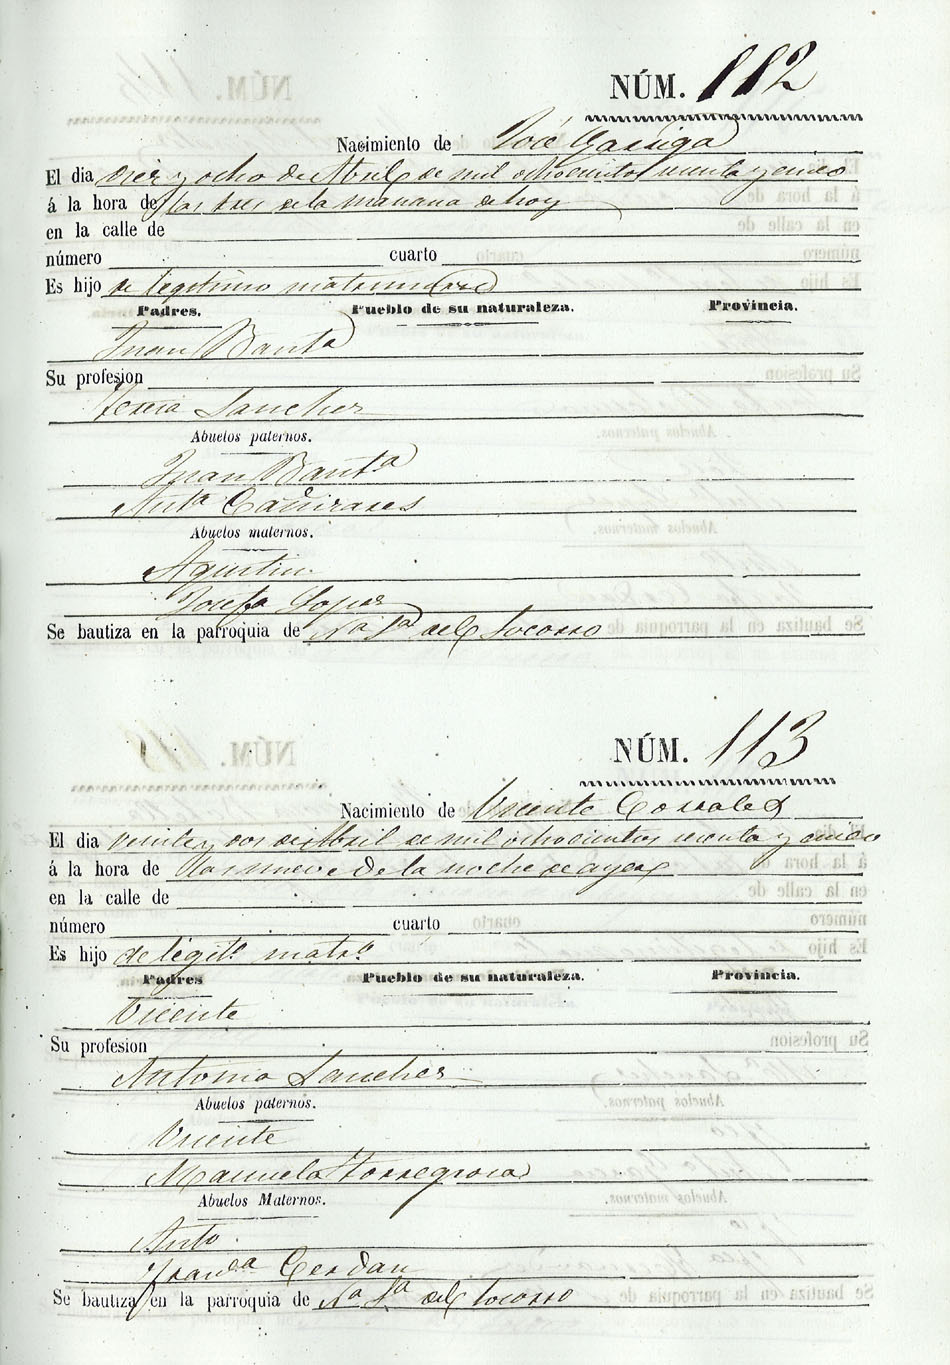 NÚM. 112
Nacimiento de José Garriga
El dia diez y ocho de Abril de mil ochocientos sesenta y cinco
á la hora de las tres de la mañana de hoy
en la calle de
número cuarto
Es hijo de legitimo matrimonio
Padres. Pueblo de su naturaleza. Provincia.
Juan Bauta
Su profesion
Teresa Sanchez
Abuelos paternos.
Juan Bauta
Anta Cañizares
Abuelos maternos.
Agustin
Josefa Lopez
Se bautiza en la parroquia de Na Sa del Socorro
NÚM. 113
Nacimiento de Vicente Gonzalez
El dia veinte y dos de Abril de mil ochocientos sesenta y cinco
á la hora de las nueve de la noche de ayer
en la calle de
número cuarto
Es hijo de legito matro
Padres Pueblo de su naturaleza. Provincia.
Vicente
Su profesion
Antonia Sanchez
Abuelos paternos.
Vicente
Manuela Torregrosa
Abuelos Maternos.
Anto
Franca Cerdan
Se bautiza en la parroquia de Na Sa del Socorro